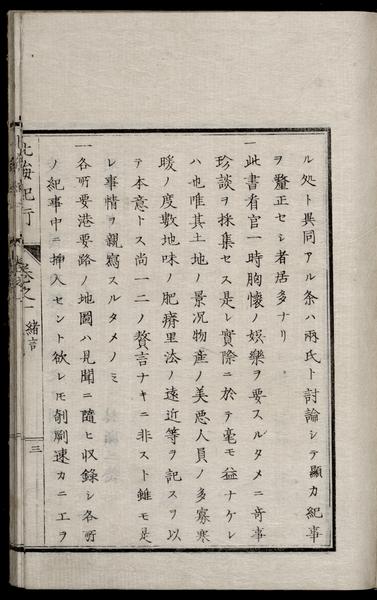 ル処ト異同アル条ハ両氏ト討論シテ顕カ紀事
ヲ釐正セシ者居多ナリ
一此書看官一時胸懐ノ娯樂ヲ要スルタメニ奇事
珍談ヲ採集セス是レ實際ニ於テ毫モ益ナケレ
ハ也唯其土地ノ景况物産ノ美悪人員ノ多寡寒
暖ノ度数地味ノ肥瘠里法ノ遠近等ヲ記スヲ以
テ本意トス尚一二ノ贅言ナキニ非スト雖モ是
レ事情ヲ親寫スルタメノミ
一各所要港要路ノ地圖ハ見聞ニ隨ヒ収録シ各所
ノ紀事中ニ挿入セント欲レモ剞劂速カニ工ヲ
北海紀行
巻之一
緒言
三